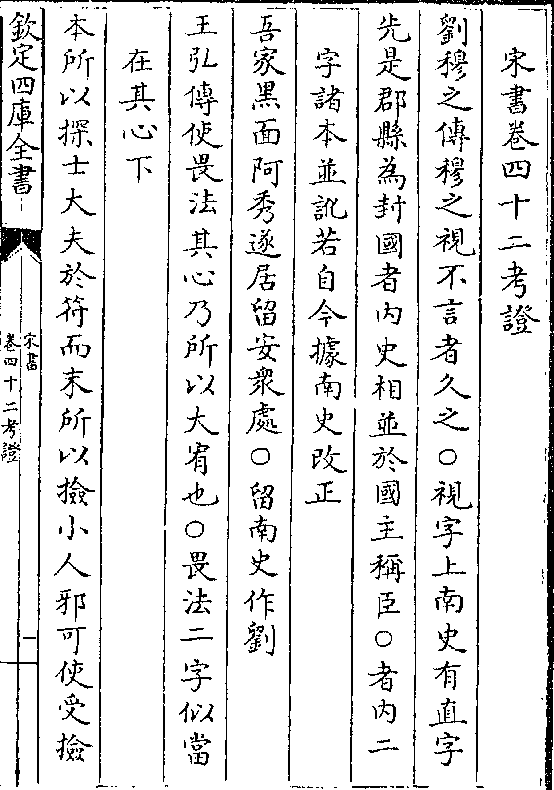 宋書卷四十二考證
劉穆之傳穆之視不言者久之○視字上南史有直字
先是郡縣為封國者內史相並於國主稱臣○者內二
字諸本並訛若自今據南史改正
吾家黑面阿秀遂居留安衆處○留南史作劉
王弘傳使畏法其心乃所以大宥也○畏法二字似當
在其心下
本所以探士大夫於符而末所以撿小人邪可使受撿
欽定四庫全書
宋書
卷四十二考證
一